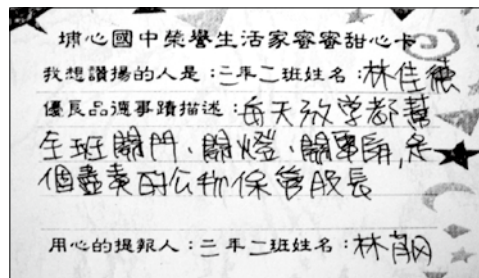 埔心國中榮譽生活家蜜蜜甜心卡
我想讚揚的人是：三年二班姓名：林佳德
優良品德事蹟描述：每天放学都幫
全班關門、關燈、關電扇,是
個盡責的公物保管股長
用心的提報人：三年二班姓名：林